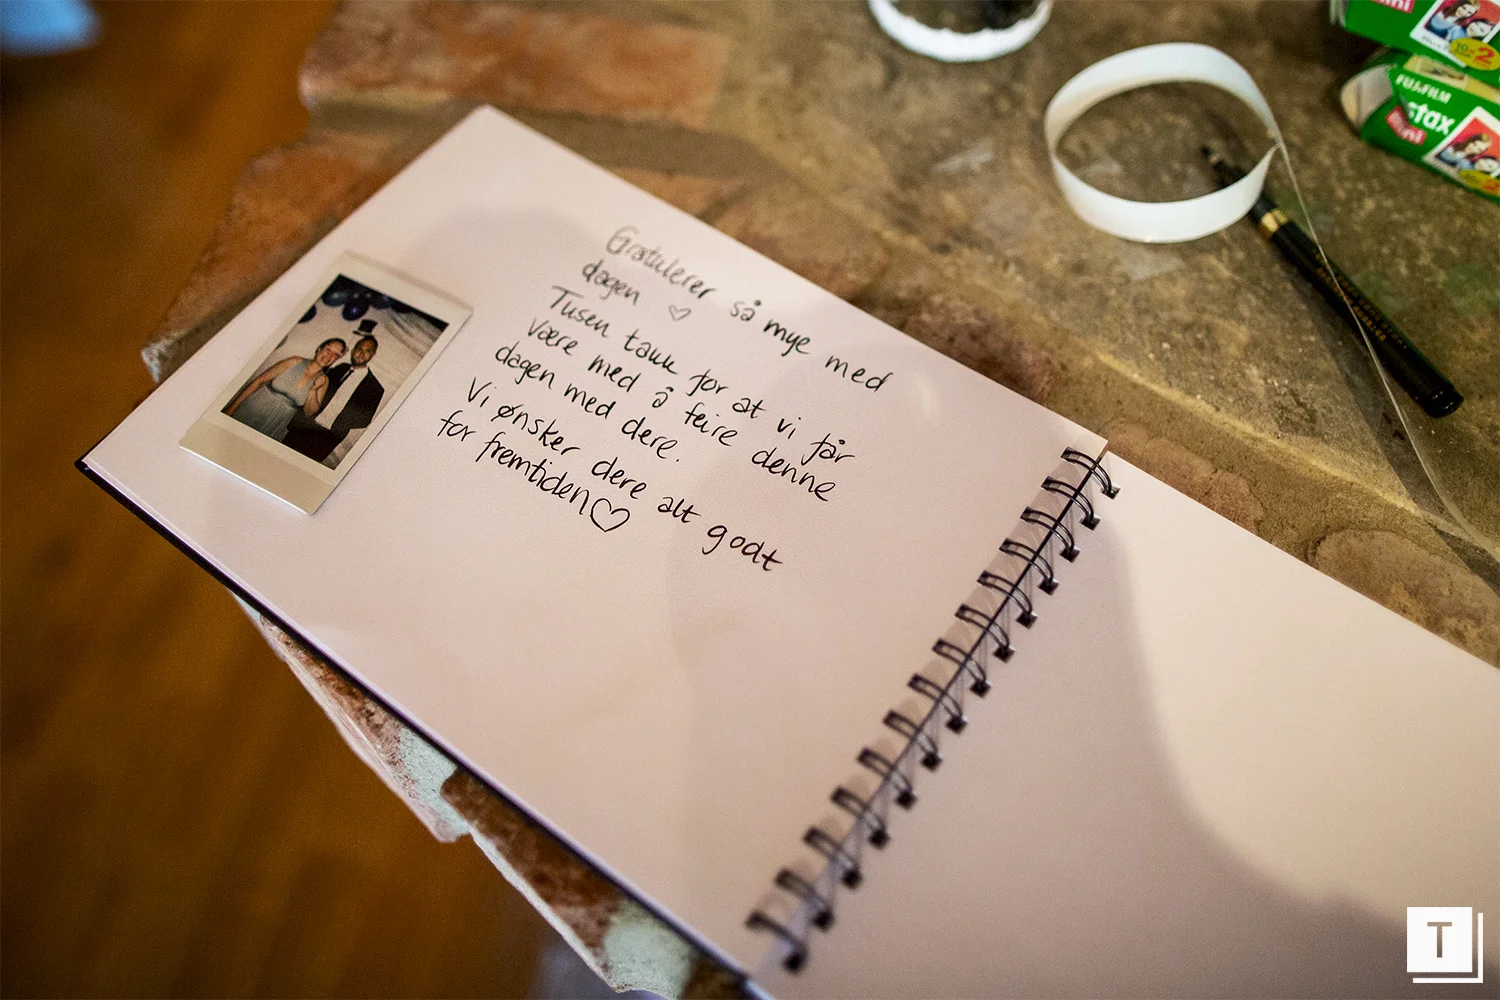 Gratulerer så mye med
dagen ♡
Tusen takk for at vi får
være med å feire denne
dagen med dere.
Vi ønsker dere alt godt
for fremtiden ♡
mini
10×2
FUJIFILM
stax
mini
T